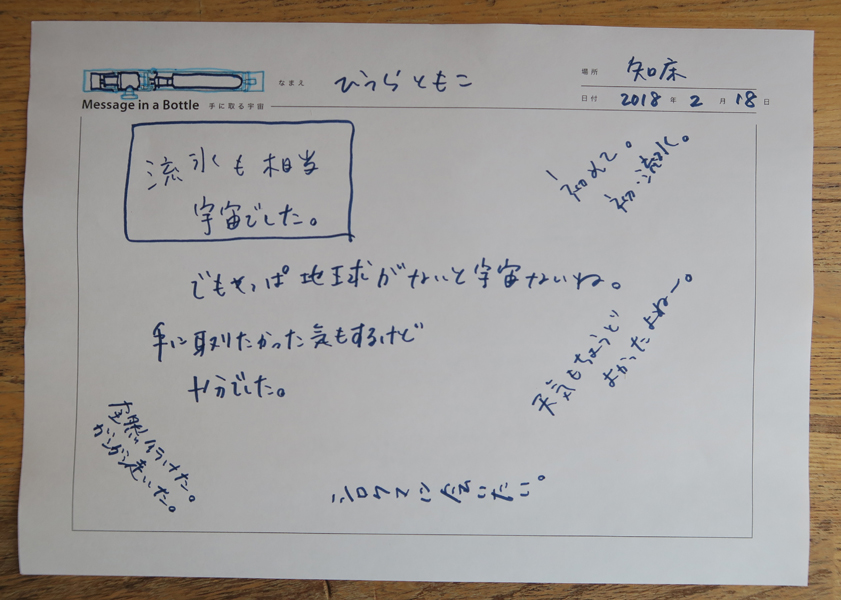 なまえ ひうらともこ
場所 知床
Message in a Bottle 手に取る宇宙
日付 2018 年 2 月 18 日
流氷も相当
宇宙でした。
初めて。
初・流氷。
でもやっぱ地球がないと宇宙ないね。
手に取りたかった気もするけど
十分でした。
天気もちょうど
よかったよねー。
全然行けた。
ガンガン歩いた。